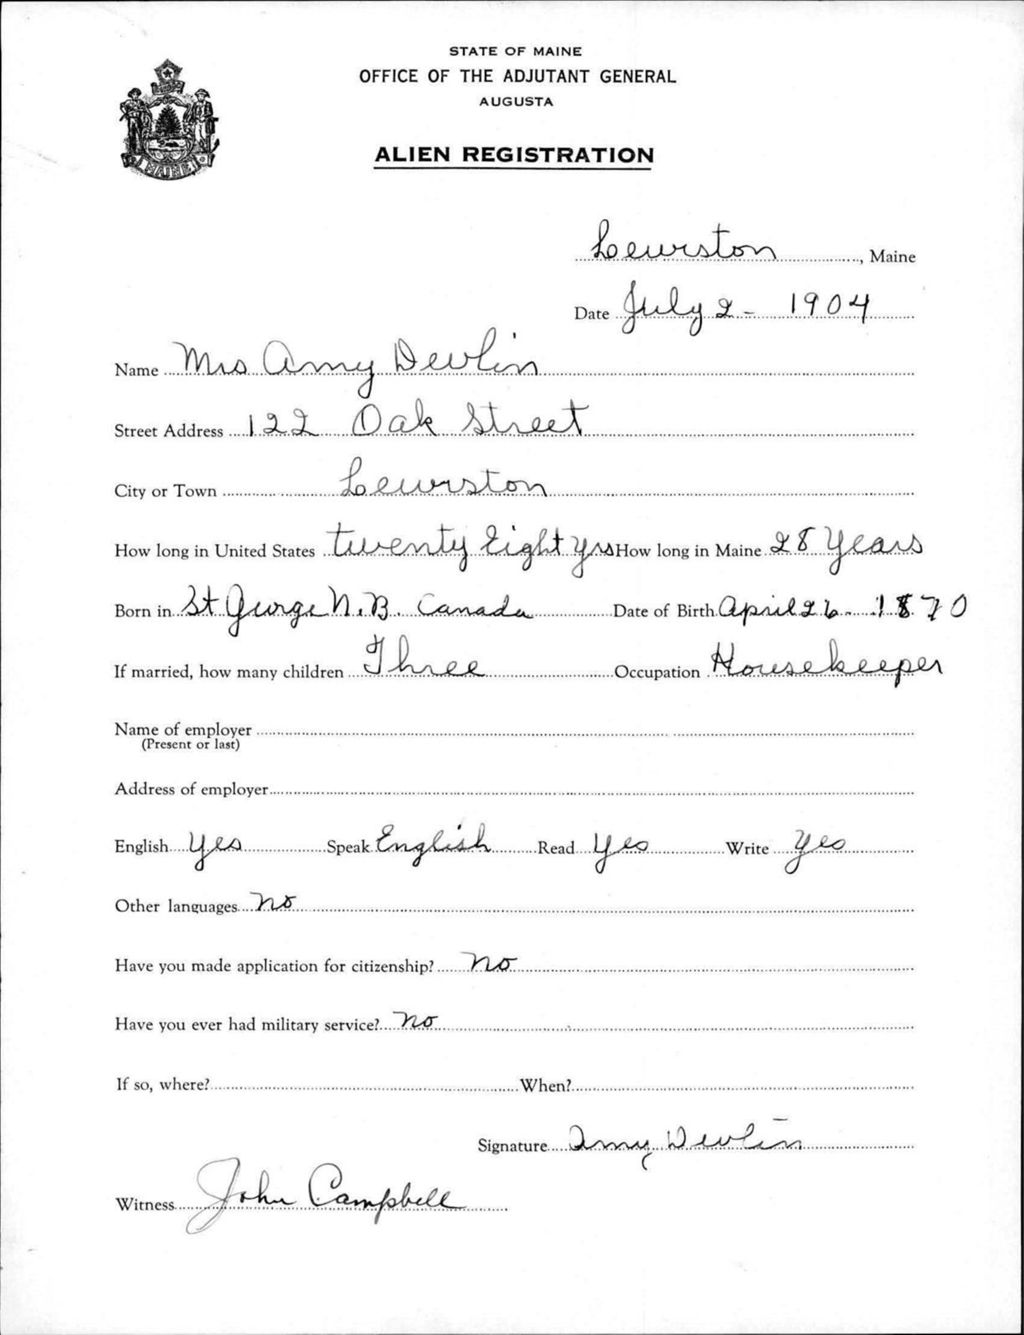 STATE OF MAINE
OFFICE OF THE ADJUTANT GENERAL
AUGUSTA
ALIEN REGISTRATION
MAINE
Lewiston, Maine
Date July 2 - 1904
Name Mrs Amy Devlin
Street Address 122 Oak Street
City or Town Lewiston
How long in United States twenty Eight yrs How long in Maine 28 Years
Born in St George N.B. Canada Date of Birth April 26 - 1870
If married, how many children Three Occupation Housekeeper
Name of employer
(Present or last)
Address of employer
English Yes Speak English Read Yes Write Yes
Other languages No
Have you made application for citizenship? No
Have you ever had military service? No
If so, where? When?
Signature Amy Devlin
Witness John Campbell